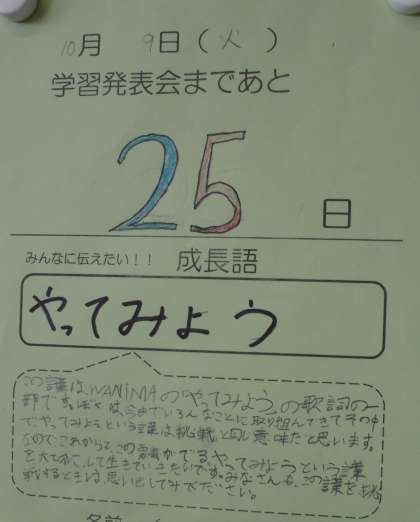 10月 9日（火）
学習発表会まであと
25日
みんなに伝えたい！！ 成長語
やってみよう
この語は、WANIMAの「やってみよう」の歌詞の一
部です。ぼくは、今までいろんなことに取り組んできてその中
でやってみようという語は挑戦と同じ意味だと思います。
なのでこれからも、この
やってみようという語
を大切にして生きていきたいです。みなさんも、この語を挑
戦するときは、思い出してみてください。